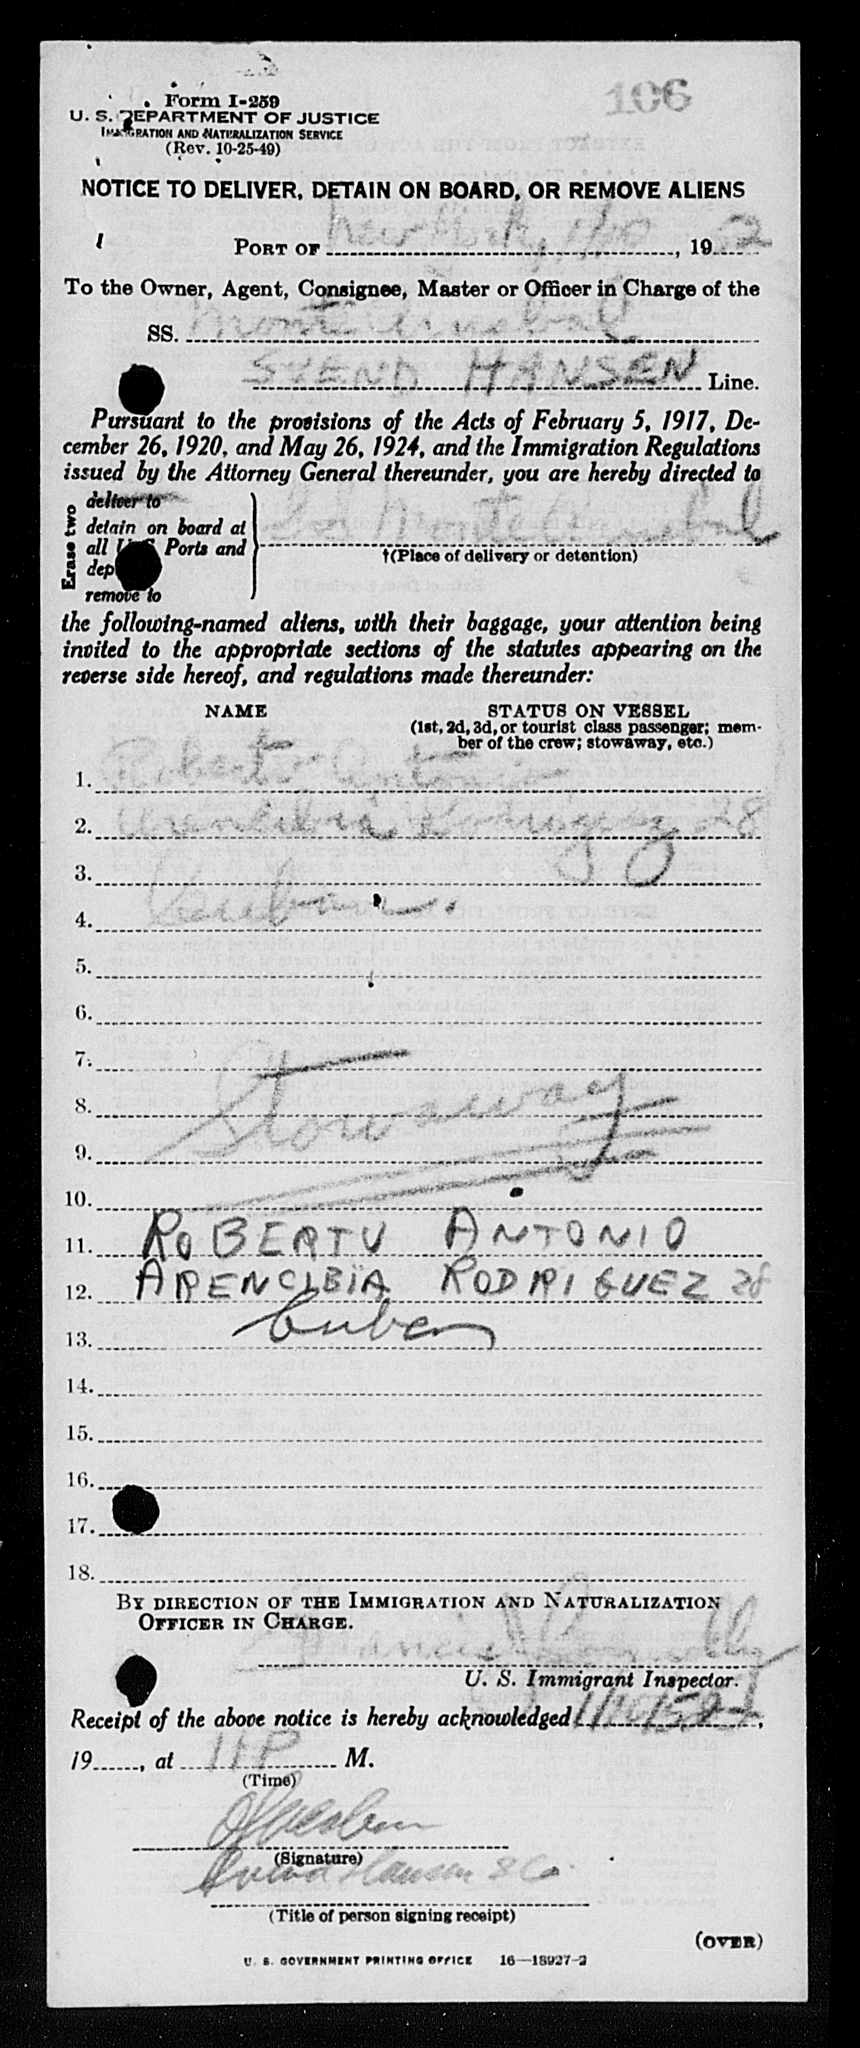 106
Form I-259
U. S. DEPARTMENT OF JUSTICE
IMMIGRATION AND NATURALIZATION SERVICE
(Rev. 10-25-49)
NOTICE TO DELIVER, DETAIN ON BOARD, OR REMOVE ALIENS
PORT OF New York, 1/10, 1952
To the Owner, Agent, Consignee, Master or Officer in Charge of the
SS. Monte
SVEND HANSEN Line.
Pursuant to the provisions of the Acts of February 5, 1917, De-
cember 26, 1920, and May 26, 1924, and the Immigration Regulations
issued by the Attorney General thereunder, you are hereby directed to
Erase two
deliver to
detain on board at
all U S Ports and
dep
remove to
SS Monte
†(Place of delivery or detention)
the following-named aliens, with their baggage, your attention being
invited to the appropriate sections of the statutes appearing on the
reverse side hereof, and regulations made thereunder:
NAME
STATUS ON VESSEL
(1st, 2d, 3d, or tourist class passenger; mem-
ber of the crew; stowaway, etc.)
1. Roberto Antonio
2. Arencibia Rodriguez 28
3.
4. Cuban.
5.
6.
7.
8. Stowaway
9.
10.
11. ROBERTO ANTONIO
12. ARENCIBIA RODRIGUEZ 28
13. Cuban
14.
15.
16.
17.
18.
BY DIRECTION OF THE IMMIGRATION AND NATURALIZATION
OFFICER IN CHARGE.
Francis
U. S. Immigrant Inspector.
Receipt of the above notice is hereby acknowledged 1/10/52,
19, at 11 P M.
(Time)
(Signature)
Svend Hansen & Co.
(Title of person signing receipt)
(OVER)
U. S. GOVERNMENT PRINTING OFFICE 16—18927-2